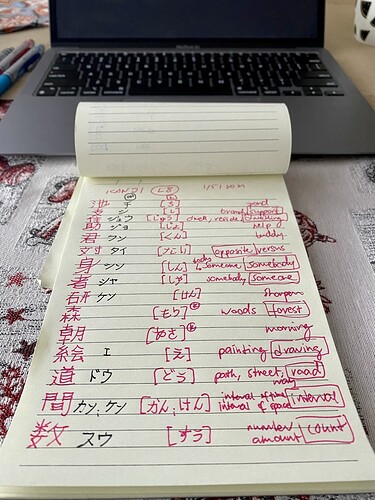 KANJI L8 1/5/2024
池 チ [ち] pond
支 シ [し] branch support
住 ジュウ [じゅう] dwell, reside
助 ジョ [じょ] help
君 クン [くん] buddy
対 タイ [たい] opposite versus
身 シン [しん] someone somebody
者 シャ [しゃ] somebody someone
研 ケン [けん] sharpen
森 [もり] woods forest
朝 [あさ] morning
絵 エ [え] painting drawing
道 ドウ [どう] path, street, road way
間 カン, ケン [かん, けん] interval of time interval of space interval
数 スウ [すう] number amount count